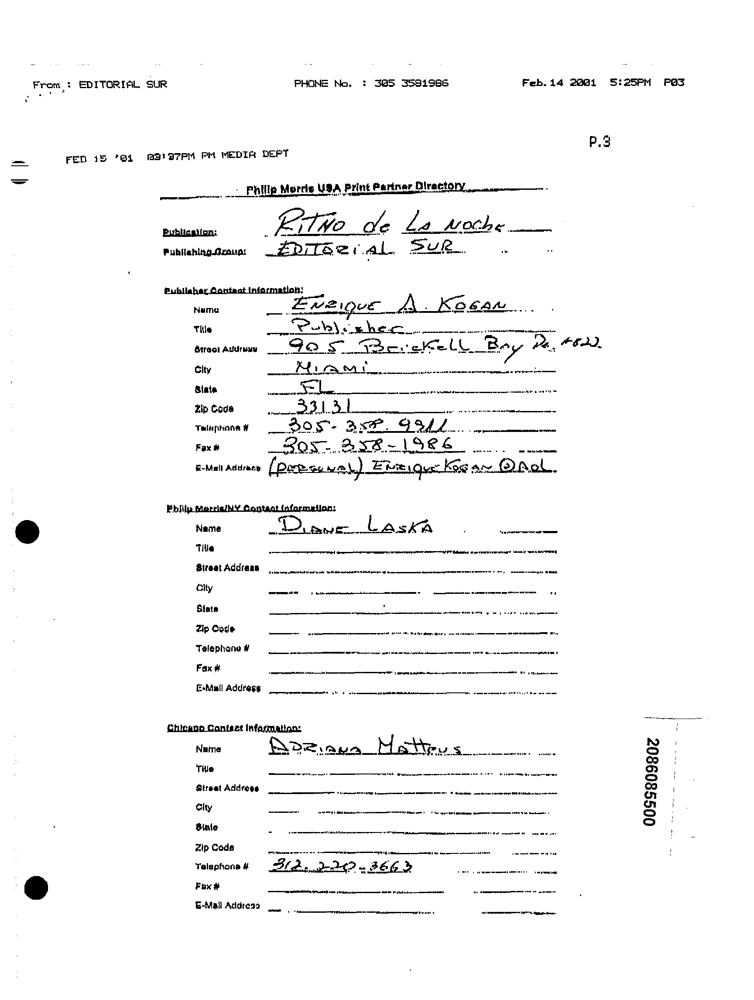 From : EDITORIAL SUR PHONE No. : 305 3581986 Feb.14 2001 5:25PM P03
P.3
FEB 15 '01 03:37PM PM MEDIA DEPT
Philip Morris USA Print Partner Directory
Publication: RITMO de LA NOChe
Publishing Group: EDITORIAL SUR
Publisher Contact Information:
Name ENRIQUE A. KOGAN
Title Publisher
Street Address 905 BrickELL Bay Dr. #622
City MIAMI
State FL
Zip Code 33131
Telephone # 305-358.9311
Fax # 305-358-1986
E-Mail Address (PERSONAL) ENRIQUE KOGAN @AOL
Philip Morris/NY Contact Information:
Name DIANE LASKA
Title
Street Address
City
State
Zip Code
Telephone #
Fax #
E-Mail Address
Chicago Contact Information:
Name ADRIANA MATTEUS
Title
Street Address
City
State
Zip Code
Telephone # 312.220-3663
Fax #
E-Mail Address
2086085500